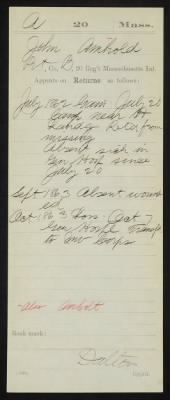 A 20 Mass.
John Amhold
Pvt, Co. B, 20 Reg't Massachusetts Inf.
Appears on Returns as follows:
July 1862 Gain July 20
Camp near
from
missing
Absent sick in
Gen Hosp since
July 20
Sept 1863 Absent wound
ed
Oct 1863 Oct 7
Gen Hosp Transfd
to Inv Corps
Book mark:
Dalton
Copyist.